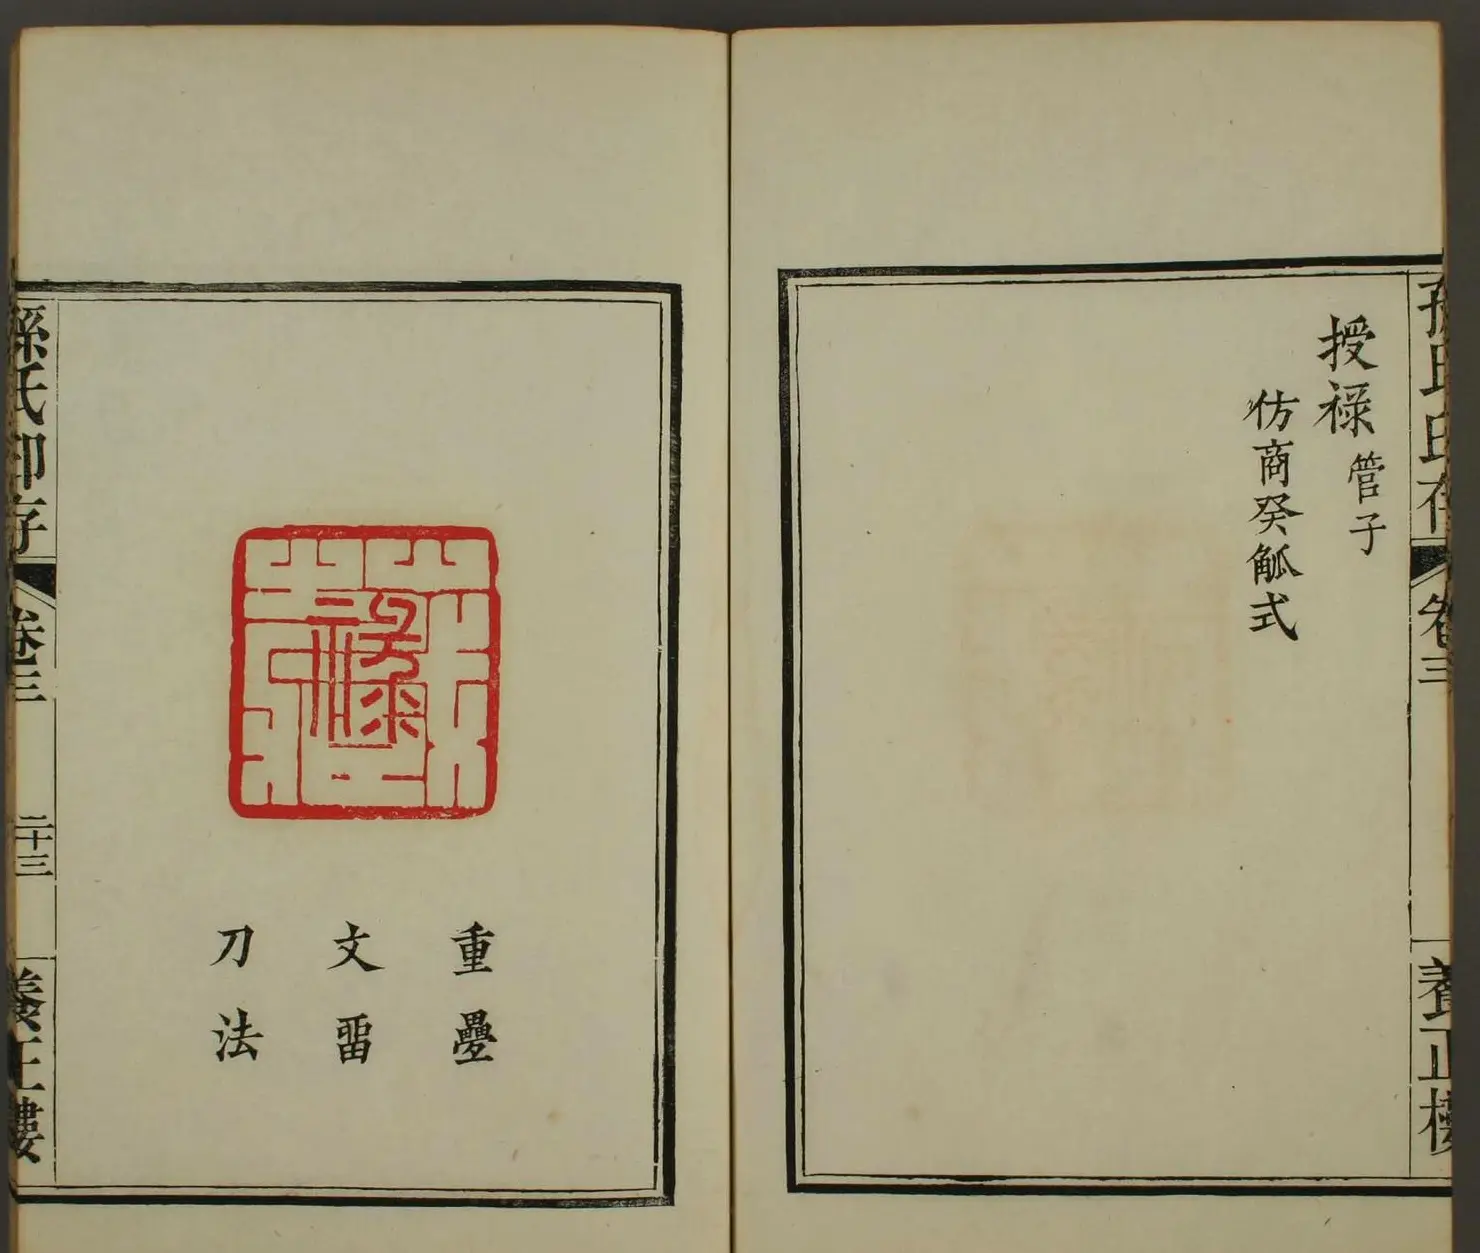 孫氏印存 卷三 養正樓
授祿 管子
仿商癸觚式
重疊
文畱
刀法
孫氏印存 卷三 二十三 養正樓